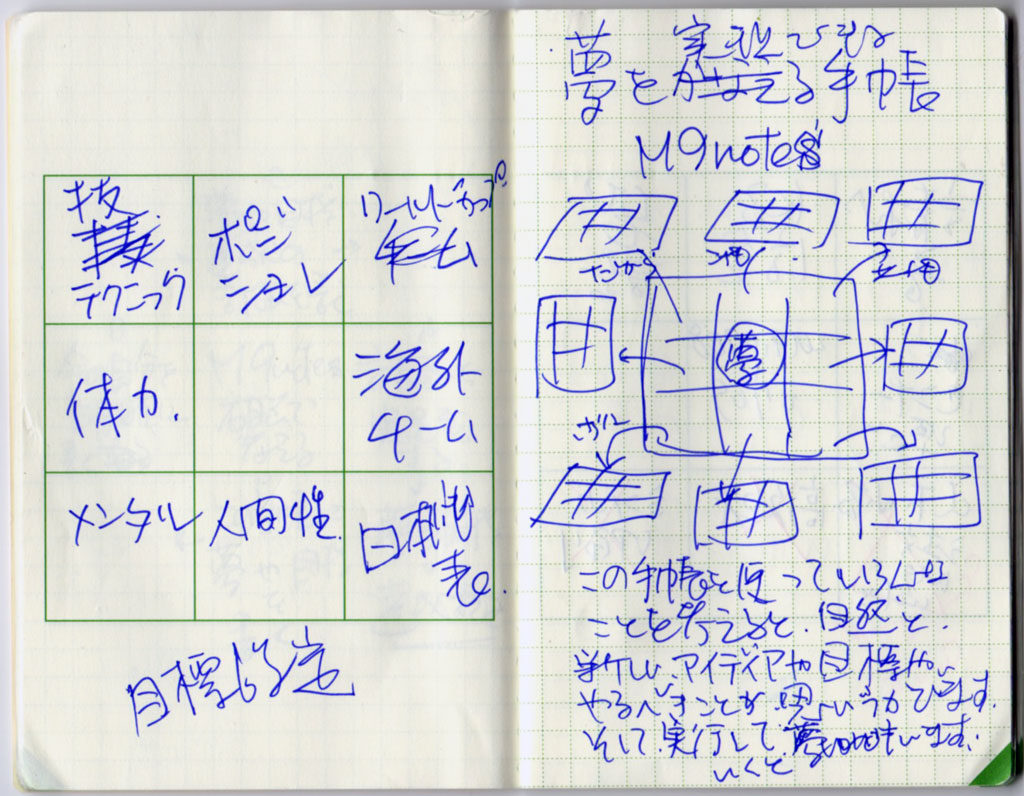 技
テクニック
ポジション
ワールドカップ
チーム
体力.
海外
チーム
メンタル
人間性.
日本代表.
目標設定
実現する
夢をかなえる手帳
M9notes
夢
この手帳を使っていろんな
ことを考えると、自然と、
新しい、アイディアや目標や、
やるべきことが思いうかびます.
そして、実行して
いくと